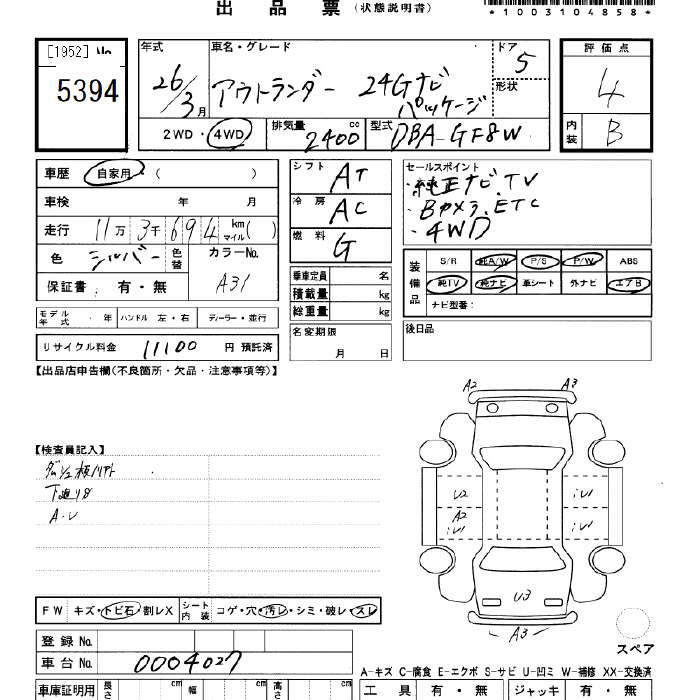 出品票 (状態説明書)
*1003104858*
[1952] No.
5394
年式 26/3月
車名・グレード
アウトランダー 24Gナビ
パッケージ
ドア 5
形状
評価点 4
内装 B
2WD・4WD
排気量 2400 cc
型式 DBA-GF8W
車歴 自家用・( )
車検 年 月
走行 11万3千694 km マイル( )
色 シルバー 色替 カラーNo. A31
保証書: 有・無
モデル年式 ・ 年 ハンドル 左・右 ディーラー・並行
リサイクル料金 11100 円 預託済
シフト AT
冷房 AC
燃料 G
乗車定員 名
積載量 kg
総重量 kg
名変期限
月 日
セールスポイント
・純正ナビ.TV
・Bカメラ.ETC
・4WD
装備品
S/R 純A/W P/S P/W ABS
純TV 純ナビ 革シート 外ナビ エアB
ナビ型番:
後日品
【出品店申告欄(不良箇所・欠品・注意事項等)】
【検査員記入】
下廻りサ
A・U
A2 A3
U2 iU1
A2 iU1 iU1
U3
A3
スペア
FW キズ・トビ石・割レX シート内装 コゲ・穴・汚レ・シミ・破レ・スレ
登録No.
車台No. 0004027
A-キズ C-腐食 E-エクボ S-サビ U-凹ミ W-補修 XX-交換済
車庫証明用 長さ cm 幅 cm 高さ cm
工具 有・無 ジャッキ 有・無